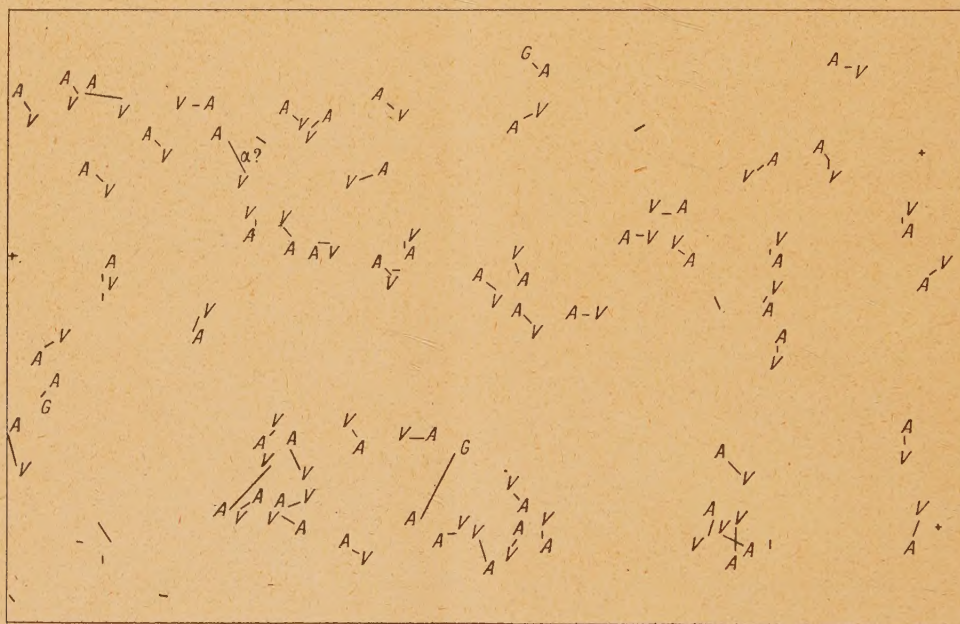 G
A
A – V
A A
A
V V
V – A
A
V
A V
A
V
A
V
V
A
A
V
A
α?
V
A
V
V – A
A
V
A
V
V
A
V
A
A V
V
A
A
V
V
A
V
A
V – A
A – V
V
A
V
A
V
A
A
V
V
A
A
V
A
V
A – V
V
A
A
V
V
A
V
A
V
A
A
G
A
V
V
A
V
A
V
A
V
A
V – A
G
A
V
A
V
A
V
A
V
A
V
A
V
A
A
V
A – V
V
A
V
A
A
V
V
A
A
V
V
V
A
A
V
A